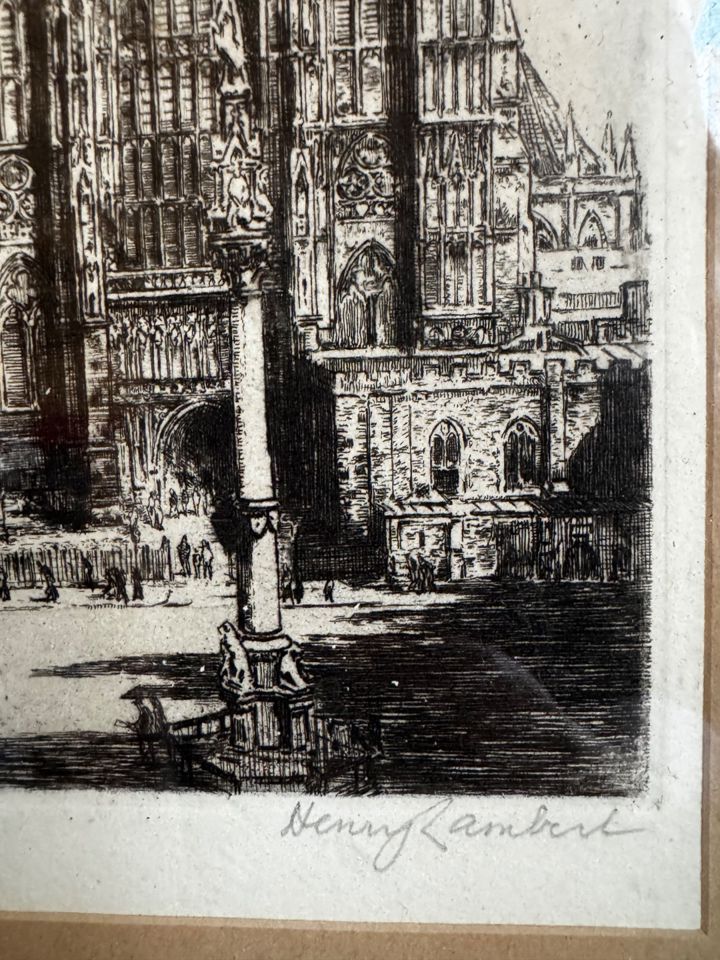 Henry Lambert